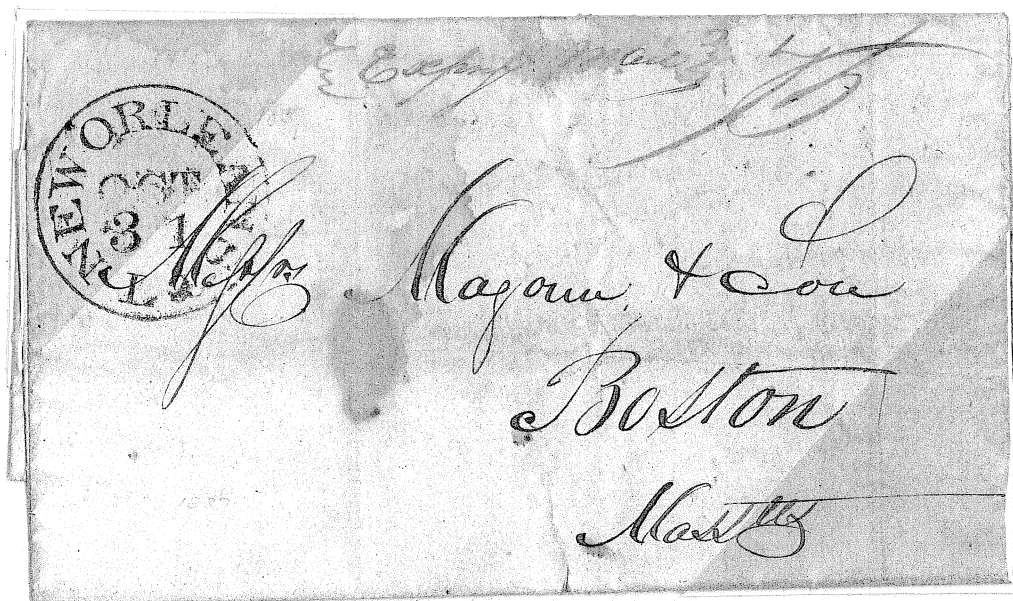 Express Mail 75
NEW ORLEANS LA
OCT
31
Messrs Magoun & Son
Boston
Masstts